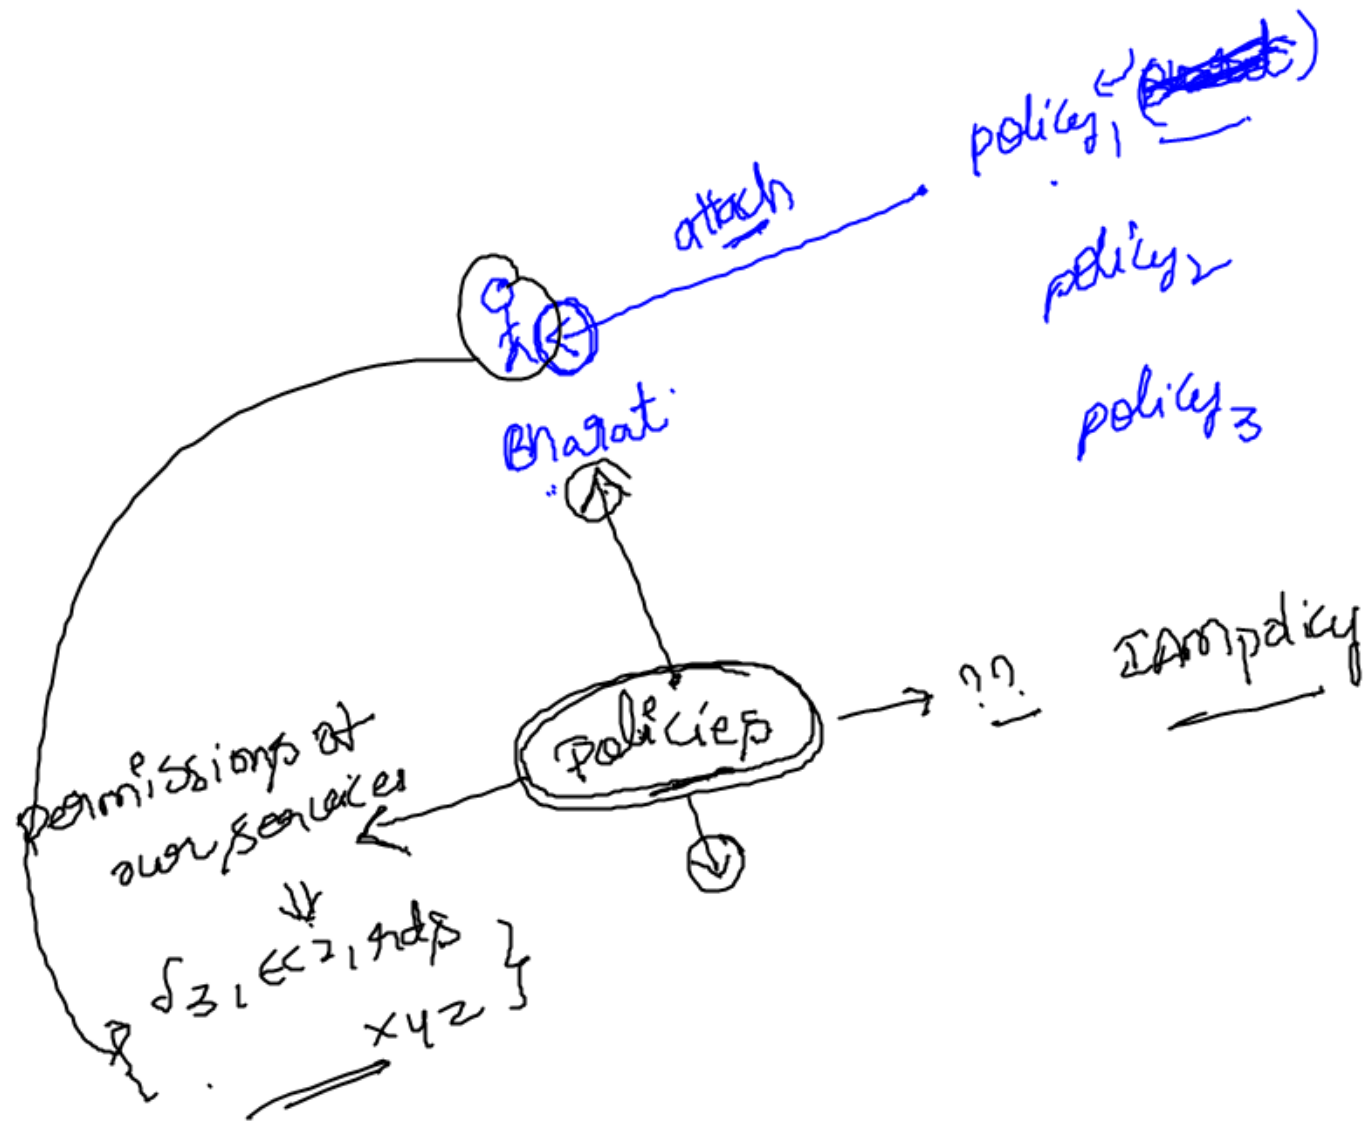 policy1 ( )
attach
policy2
policy3
Bharat
IAM policy
??
Policies
permissions of
our services
S3, EC2, rds
xyz }